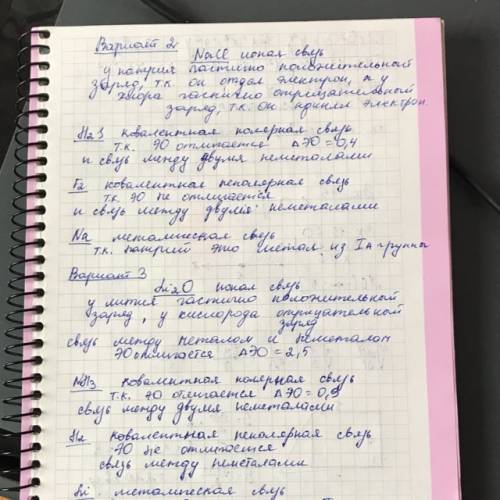 Вариант 2
NaCl ионая связь
у натрия частично положительный
заряд, т.к. он отдал электрон, а у
хлора частично отрицательный
заряд, т.к. он принял электрон.
H2S ковалентная полярная связь
т.к. ЭО отличается ΔЭО = 0,4
и связь между двумя неметалами
F2 ковалентная неполярная связь
т.к. ЭО не отличается
и связь между двумя неметалами
Na металическая связь
т.к. натрий это метал из IA группы
Вариант 3
Li2O ионая связь
у лития частично положительный
заряд, у кислорода отрицательный
заряд
связь между металом и неметалом
ЭО отличается ΔЭО = 2,5
NH3 ковалентная полярная связь
т.к. ЭО отличается ΔЭО = 0,9
связь между двумя неметалами
H2 ковалентная неполярная связь
ЭО не отличается
связь между неметалами
Li металическая связь